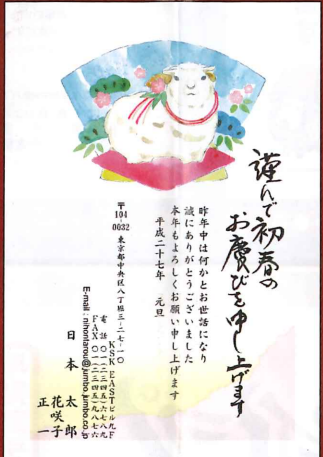 謹んで初春の
お慶びを申し上げます
昨年中は何かとお世話になり
誠にありがとうございました
本年もよろしくお願い申し上げます
平成二十七年　元旦
〒104-0032 東京都中央区八丁堀三-二七-一〇
KSK EASTビル九F
電話〇一二三四五六七八九
FAX〇一二三四五九八七六
E-mail:nihontarou@jumbo.jumbo.co.jp
日本　太郎
花咲子
正一